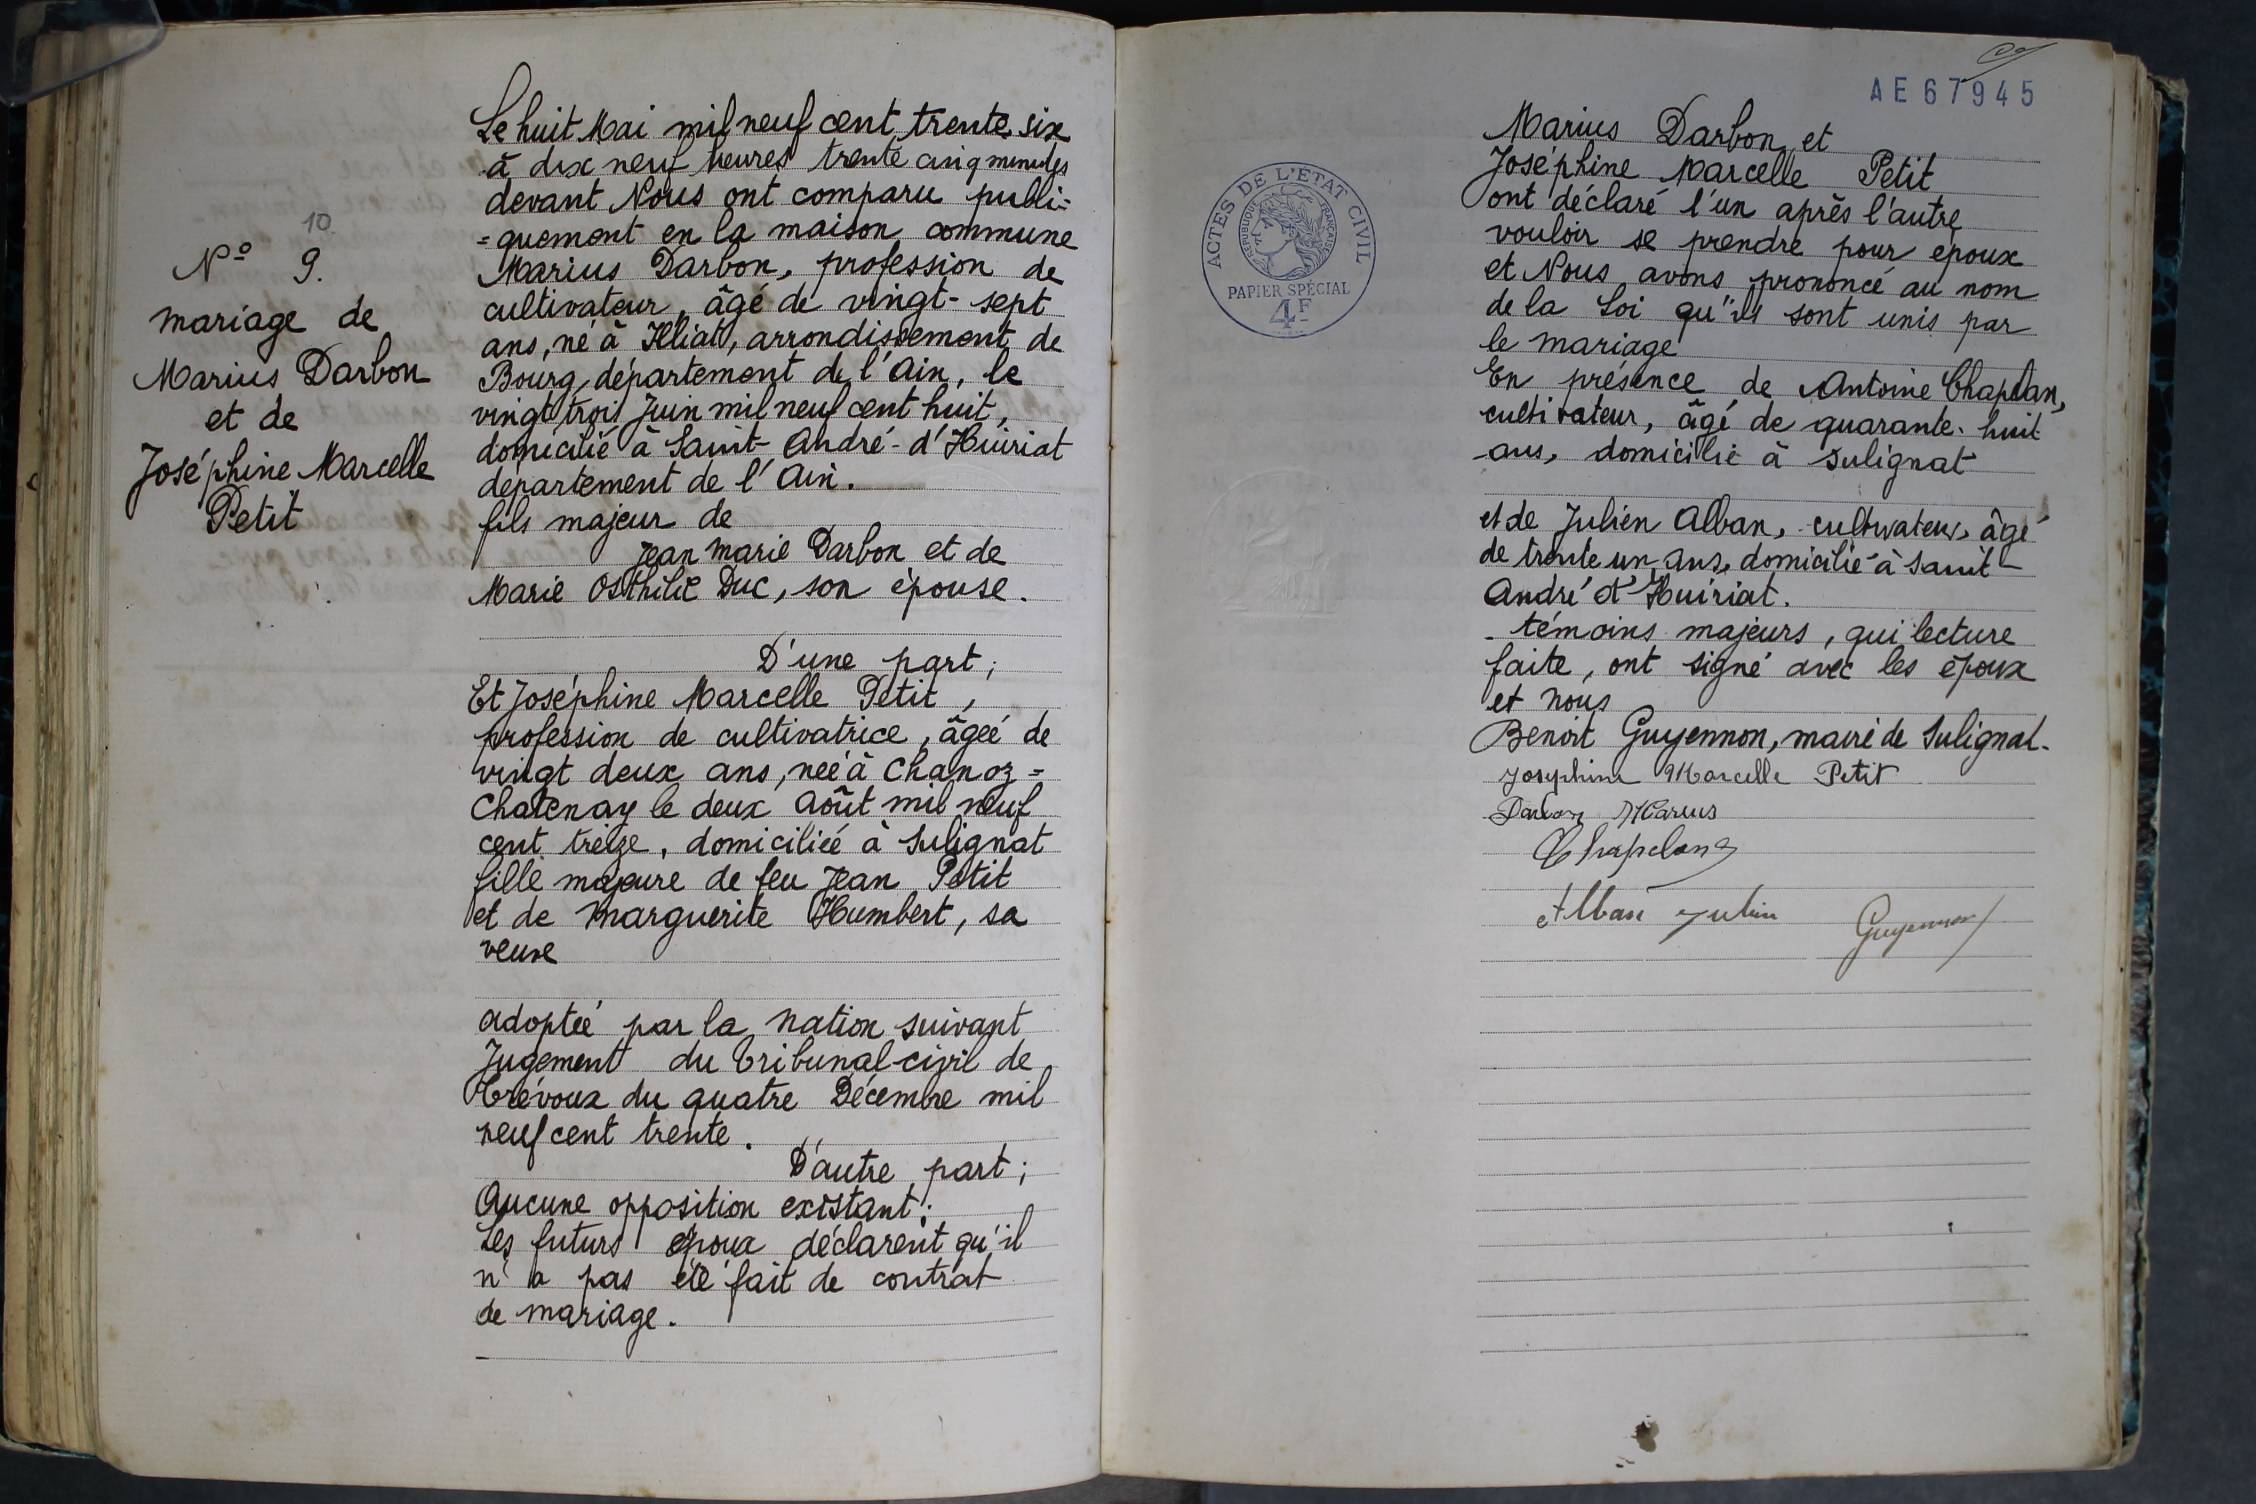 10
N° 9.
mariage de
Marius Darbon
et de
Joséphine Marcelle
Petit
Le huit Mai mil neuf cent trente six
à dix neuf heures trente cinq minutes
devant Nous ont comparu publi=
=quement en la maison commune
Marius Darbon, profession de
cultivateur, âgé de vingt-sept
ans, né à Illiat, arrondissement de
Bourg, département de l'Ain, le
vingt trois Juin mil neuf cent huit,
domicilié à Saint-André-d'Huiriat
département de l'Ain.
fils majeur de
Jean Marie Darbon et de
Marie Osthilie Duc, son épouse.
D'une part;
Et Joséphine Marcelle Petit,
profession de cultivatrice, âgée de
vingt deux ans, née à Chanoz=
Chatenay le deux Août mil neuf
cent treize, domiciliée à Sulignat
fille majeure de feu Jean Petit
et de Marguerite Humbert, sa
veuve
adoptée par la Nation suivant
Jugement du Tribunal civil de
Trévoux du quatre Décembre mil
neuf cent trente.
D'autre part;
Aucune opposition existant;
Les futurs époux déclarent qu'il
n'a pas été fait de contrat
de mariage.
AE67945
ACTES DE L'ETAT CIVIL
REPUBLIQUE FRANÇAISE
PAPIER SPÉCIAL
4F
Marius Darbon et
Joséphine Marcelle Petit
ont déclaré l'un après l'autre
vouloir se prendre pour époux
et Nous avons prononcé au nom
de la Loi qu'ils sont unis par
le mariage
En présence de Antoine Chaplan,
cultivateur, âgé de quarante-huit
ans, domicilié à Sulignat
et de Julien Alban, cultivateur, âgé
de trente un ans, domicilié à Saint-
André d'Huiriat.
témoins majeurs, qui lecture
faite, ont signé avec les époux
et Nous
Benoit Guyennon, maire de Sulignat.
Josephine Marcelle Petit
Darbon Marius
Chapelan
Alban Julien
Guyennon